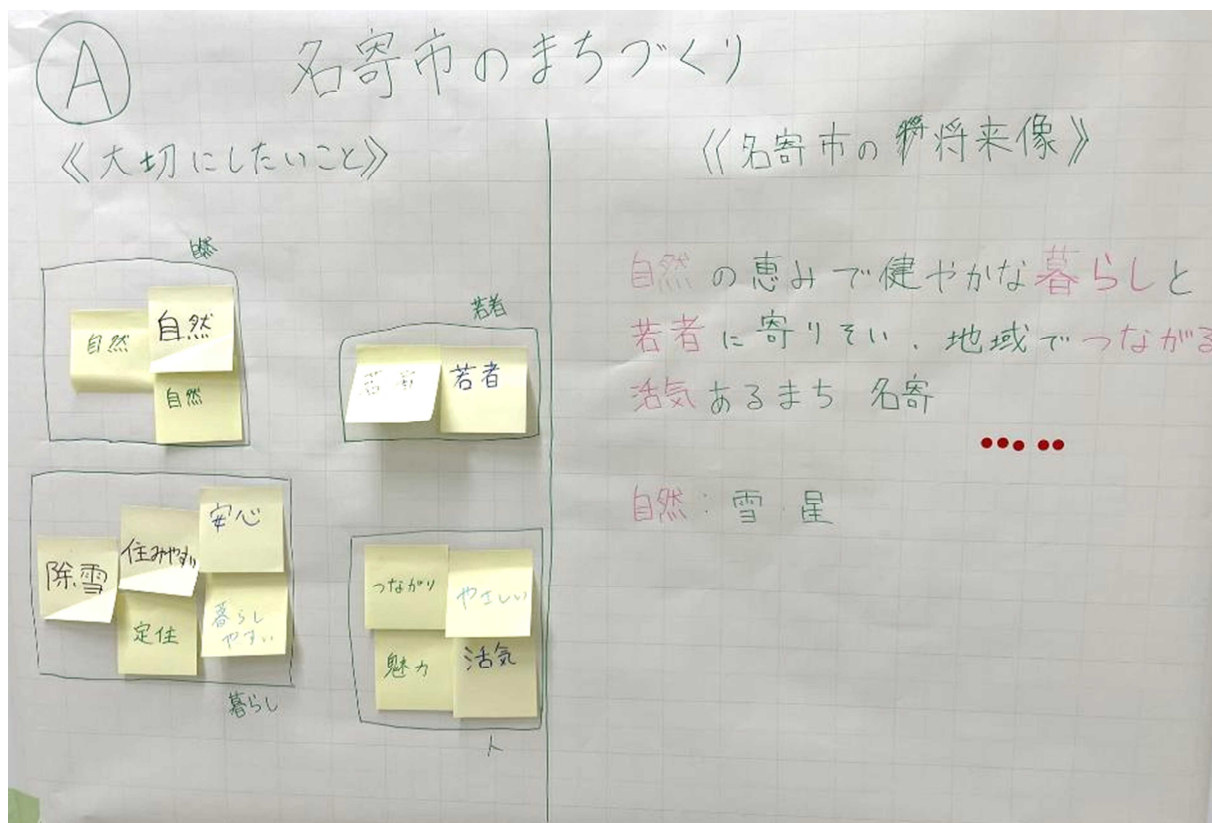 A
名寄市のまちづくり
《大切にしたいこと》
自然
自然
自然
自然
若者
若者
若者
安心
住みやすい
除雪
定住
暮らし
やすい
暮らし
つながり
やさしい
魅力
活気
人
《名寄市の将来像》
自然の恵みで健やかな暮らしと
若者に寄りそい、地域でつながる
活気あるまち 名寄
自然:雪 星